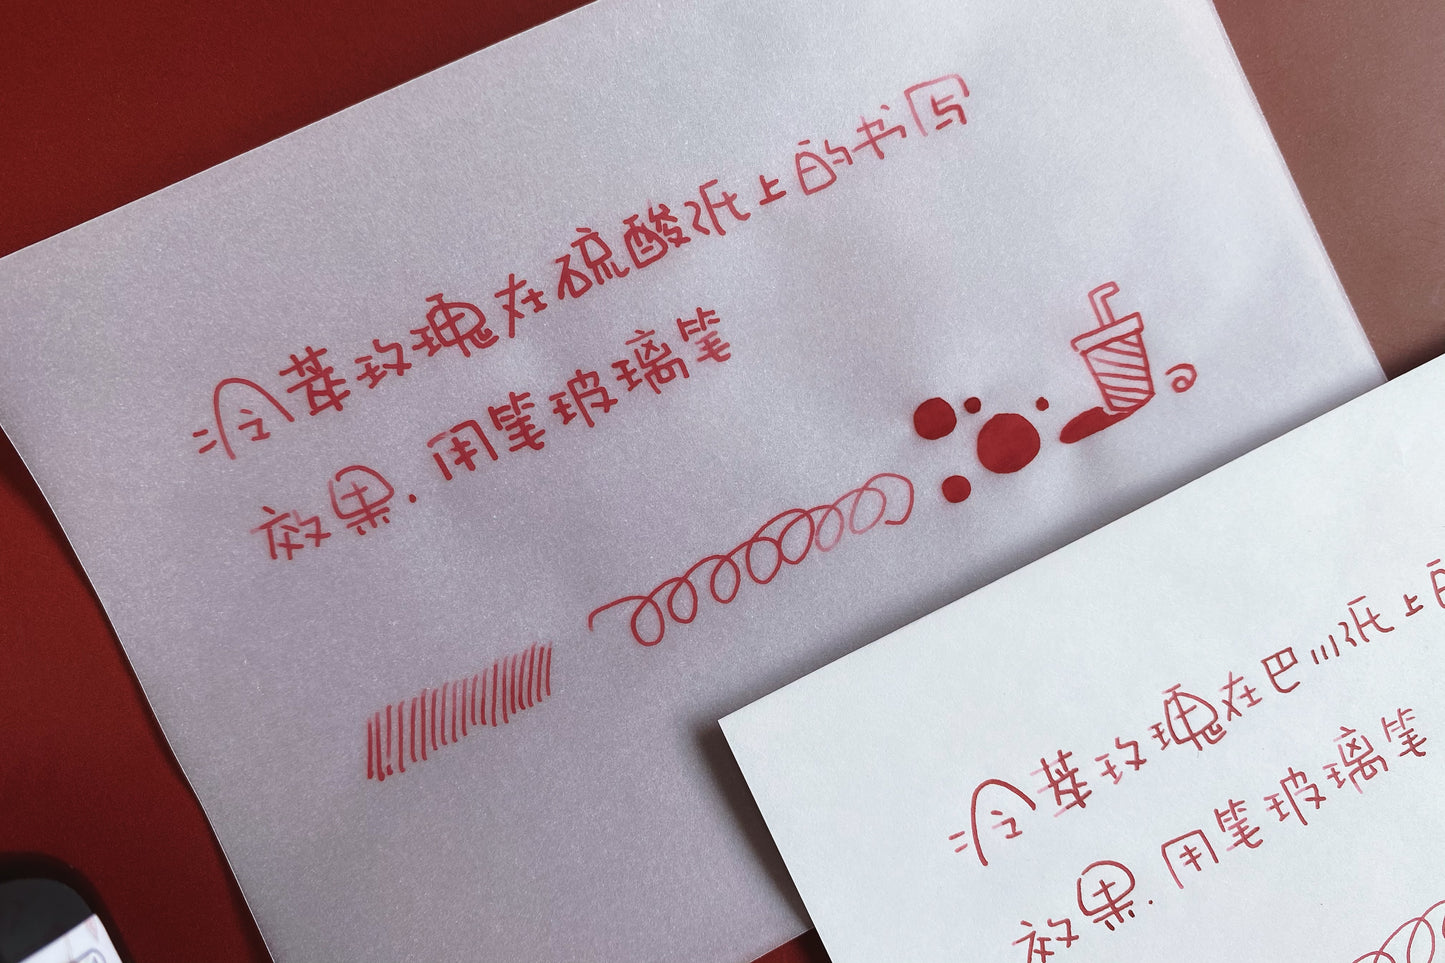 冷萃玫瑰在硫酸纸上的书写
效果.用笔玻璃笔
冷萃玫瑰在巴川纸上的
效果.用笔玻璃笔